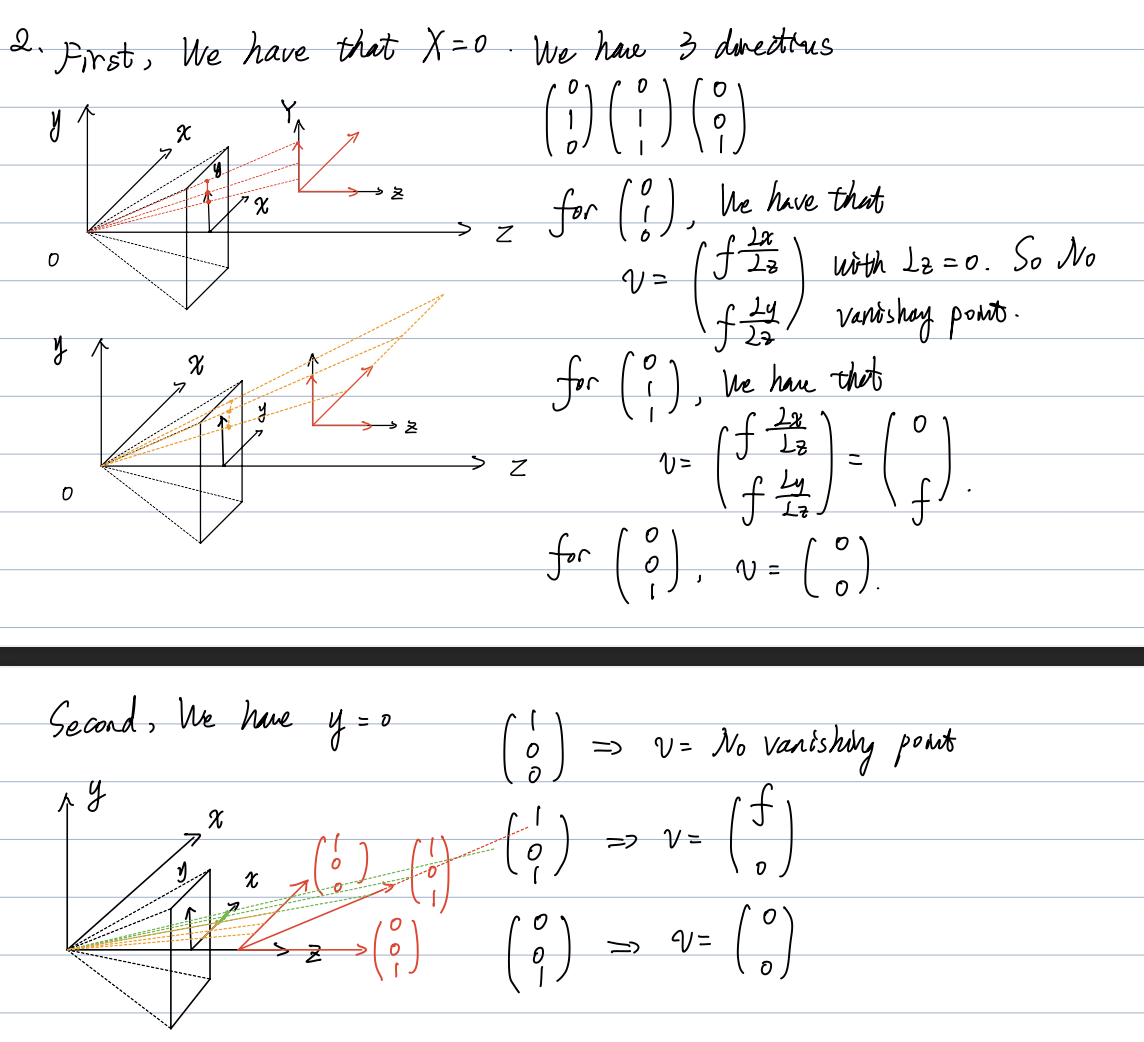 2. First, We have that X=0. We have 3 directions
(0 1 0) (0 1 1) (0 0 1)
y
x
y
x
Y
z
Z
0
for (0 1 0), We have that
v = (f Lx/Lz f Ly/Lz) with Lz=0. So No
vanishing point.
y
x
y
z
Z
0
for (0 1 1), We have that
v = (f Lx/Lz f Ly/Lz) = (0 f).
for (0 0 1), v = (0 0).
Second, We have y=0
(1 0 0) ⇒ v = No vanishing point
y
x
y
x
z
(1 0 0)
(1 0 1)
(0 0 1)
(1 0 1) ⇒ v = (f 0)
(0 0 1) ⇒ v = (0 0)